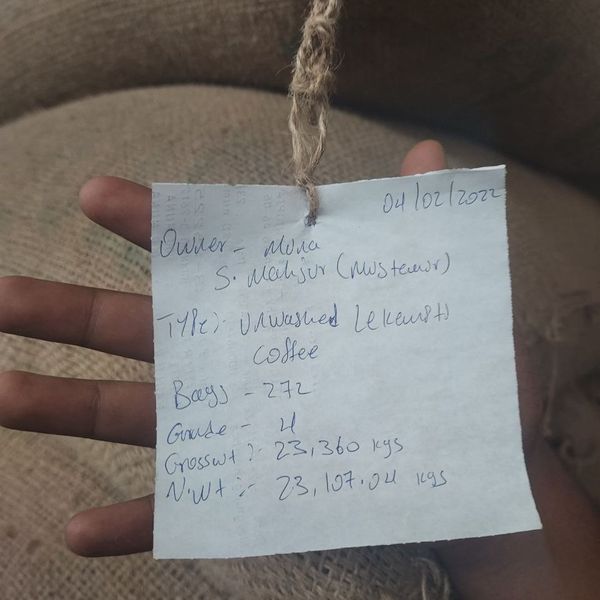 04/02/2022
Owner - Mona
S. Mahjur (Mustewr)
Type:- Unwashed Lekempti
Coffee
Bags - 272
Grade - 4
Grosswt :- 23,360 kgs
N.Wt :- 23,107.04 kgs